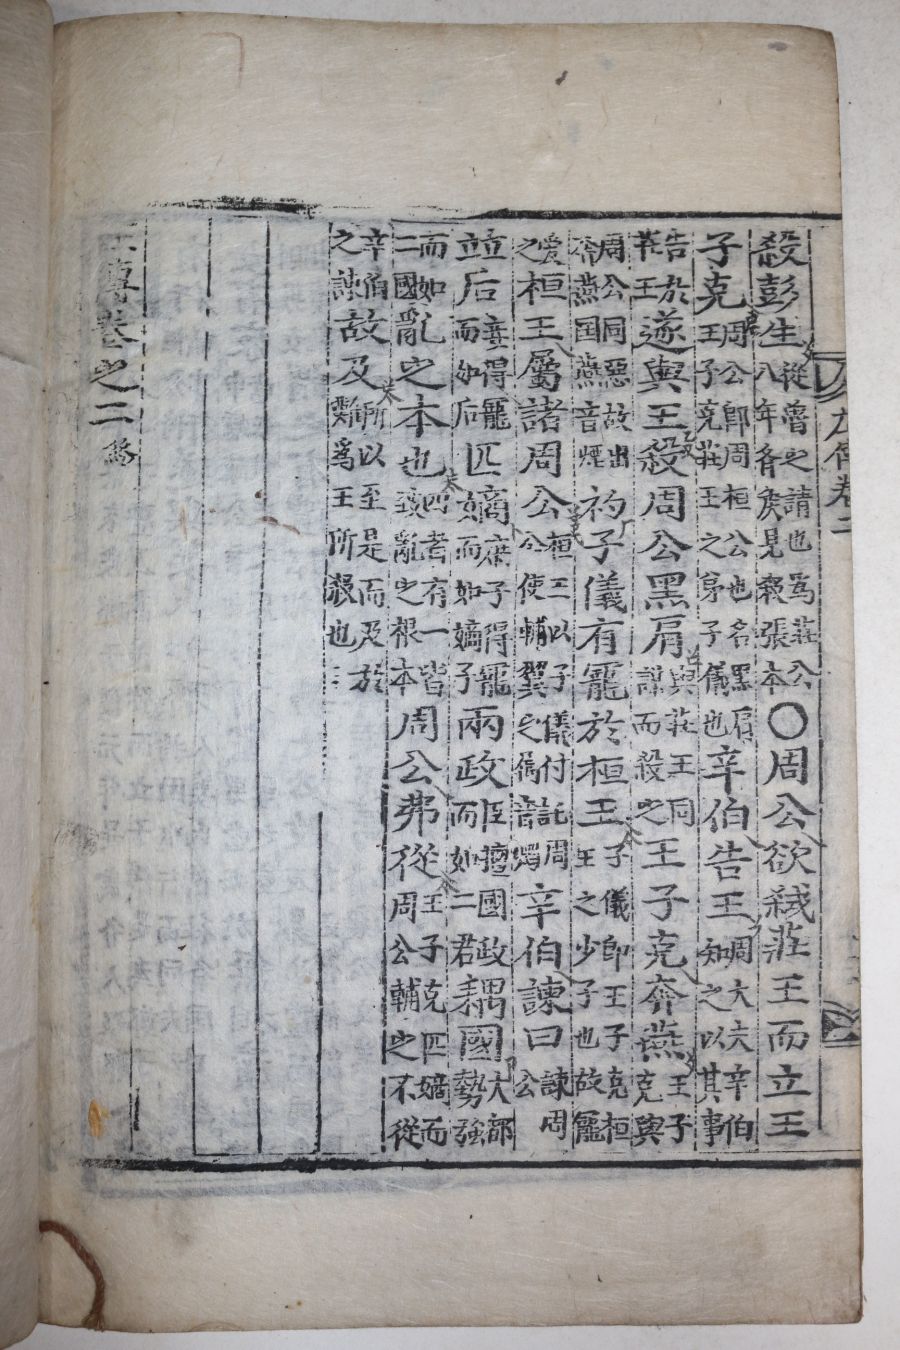 左傳卷二
殺彭生從魯之請也爲莊公八年齊矦見殺張本○周公欲弒莊王而立王
子克周公卽周桓公也名黑肩王子克莊王之弟子儀也辛伯告王周大夫辛伯知之以其事
告於莊王遂與王殺周公黑肩與莊王同謀而殺之王子克奔燕王子克與
周公同惡故出奔燕国燕音煙初子儀有寵於桓王子儀卽王子克桓王之少子也故寵
愛之桓王屬諸周公桓王以子儀付託周公使輔翼之屬音燭辛伯諫曰諫周公
並后妾得寵而如后匹嫡庶子得寵而如嫡子兩政臣擅國政而如二君耦國大都勢強
而如二國亂之本也四者有一皆致亂之根本周公弗從王子克匹嫡而周公輔之不從
辛伯之諫故及難所以至是而及於爲王所殺也
左傳卷之二終